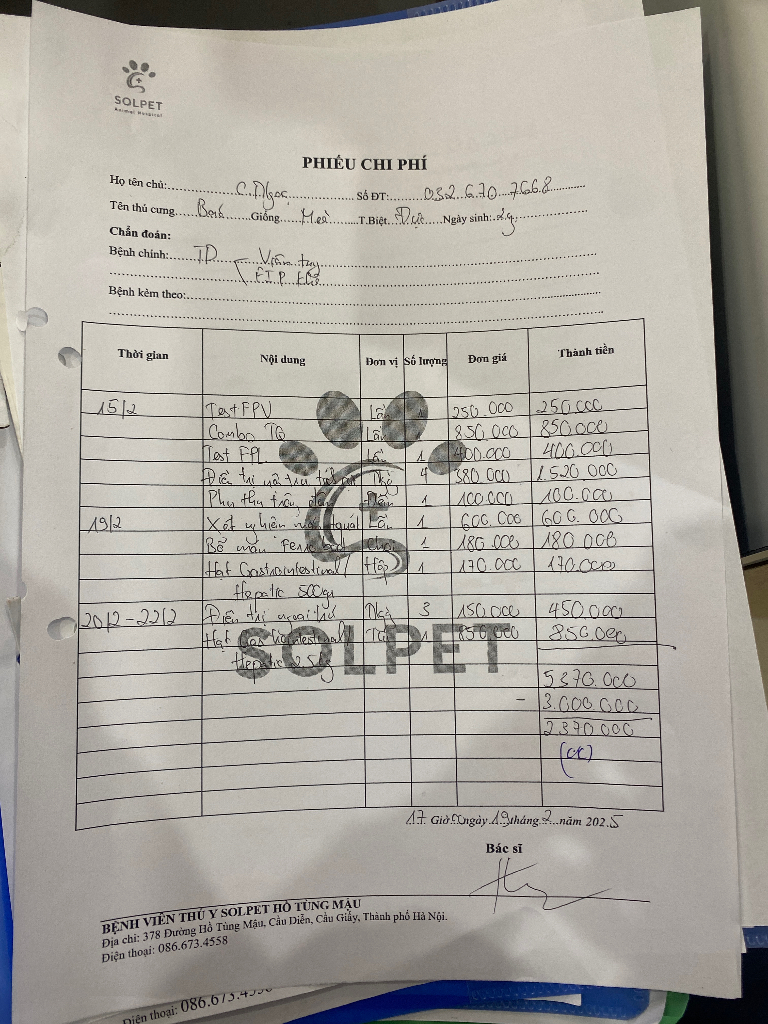 SOLPET
Animal Hospital
PHIẾU CHI PHÍ
Họ tên chủ: C. Ngọc Số ĐT: 032.670.7668
Tên thú cưng Giống Mèo T.Biệt Đực Ngày sinh: 2y
Chẩn đoán:
Bệnh chính: TD Viêm tuỵ
FIP khô
Bệnh kèm theo:
Thời gian Nội dung Đơn vị Số lượng Đơn giá Thành tiền
15/2 Test FPV Lần 1 250.000 250.000
Combo TQ Lần 850.000 850.000
Test FPL Lần 1 400.000 400.000
Điều trị nội trú 4 380.000 1.520.000
Phụ thu Đêm 1 100.000 100.000
19/2 Xét nghiệm Lần 1 600.000 600.000
Bổ máu 1 180.000 180.000
Hạt Gastrointestinal/ Hộp 1 170.000 170.000
Hepatic 500gr
20/2-22/2 Điều trị ngoại trú Ngày 3 150.000 450.000
Hạt Gastrointestinal/ Túi 1 850.000 850.000
Hepatic 2.5kg
SOLPET
5370.000
- 3.000.000
2370.000
(CK)
17 Giờ ngày 19 tháng 2 năm 2025
Bác sĩ
BỆNH VIỆN THÚ Y SOLPET HỒ TÙNG MẬU
Địa chỉ: 378 Đường Hồ Tùng Mậu, Cầu Diễn, Cầu Giấy, Thành phố Hà Nội.
Điện thoại: 086.673.4558
Điện thoại: 086.673.4558